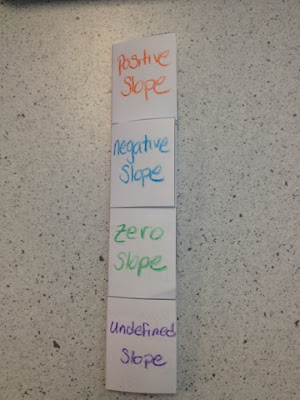 Positive
Slope
negative
Slope
Zero
Slope
undefined
Slope